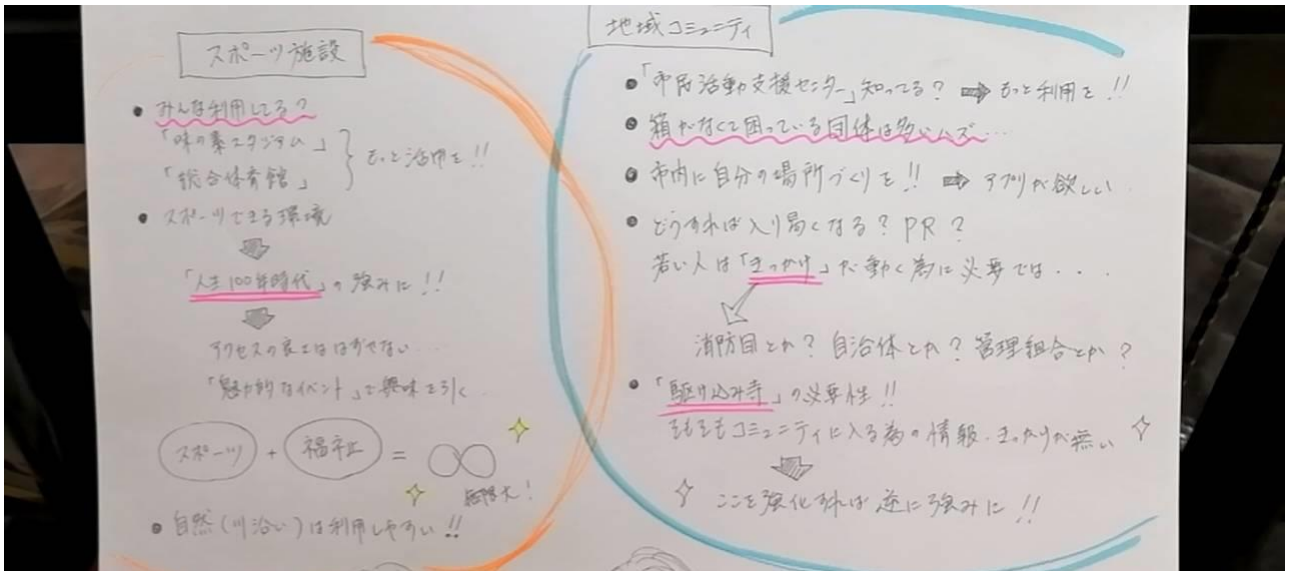 スポーツ施設
• みんな利用してる？
「味の素スタジアム」
「総合体育館」
もっと活用を!!
• スポーツできる環境
「人生100年時代」の強みに!!
アクセスの良さははずせない
「魅力的なイベント」で興味を引く
スポーツ + 福祉 = ∞
無限大!
• 自然(川沿い)は利用しやすい!!
地域コミュニティ
• 「市民活動支援センター」知ってる? ⇒ もっと利用を!!
• 箱がなくて困っている団体は多いハズ....
• 市内に自分の場所づくりを!! ⇒ アプリが欲しい
• どうすれば入り易くなる? PR?
若い人は「きっかけ」が動く為に必要では・・・
消防団とか? 自治体とか? 管理組合とか?
• 「駆け込み寺」の必要性!!
そもそもコミュニティに入る為の情報・きっかけが無い
ここを強化すれば逆に強みに!!